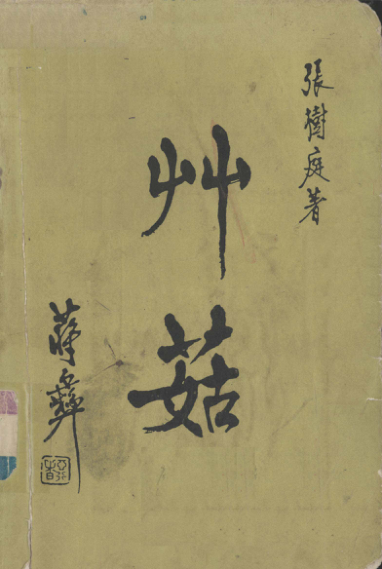 張樹庭著
艸菇
蔣彝